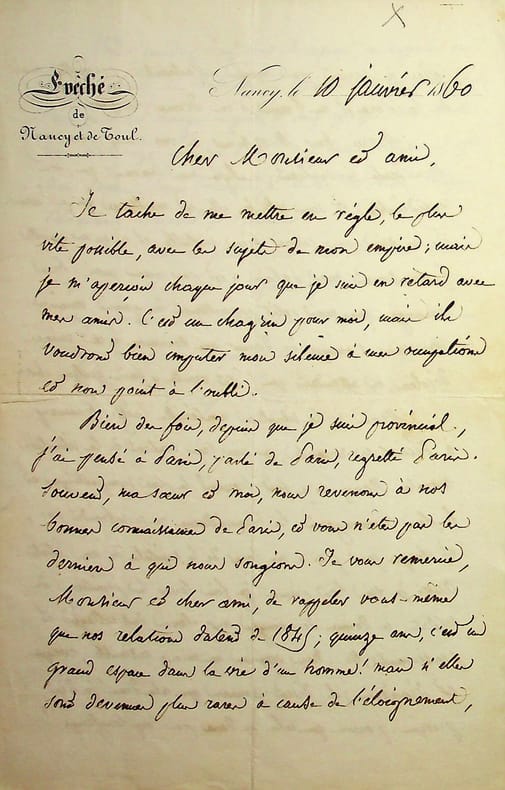 Evêché
de
Nancy et de Toul.
Nancy, le 10 janvier 1860
Cher Monsieur et ami,
Je tâche de me mettre en règle, le plus
vite possible, avec les sujets de mon empire ; mais
je m'aperçois chaque jour que je suis en retard avec
mes amis. C'est un chagrin pour moi, mais ils
voudront bien imputer mon silence à mes occupations
et non point à l'oubli.
Bien des fois, depuis que je suis provincial,
j'ai pensé à Paris, parlé de Paris, regretté Paris.
Souvent, ma sœur et moi, nous revenons à nos
bonnes connaissances de Paris, et vous n'êtes pas les
derniers à qui nous songions. Je vous remercie,
Monsieur et cher ami, de rappeler vous-même
que nos relations datent de 1845 ; quinze ans, c'est un
grand espace dans la vie d'un homme ! mais si elles
sont devenues plus rares à cause de l'éloignement,